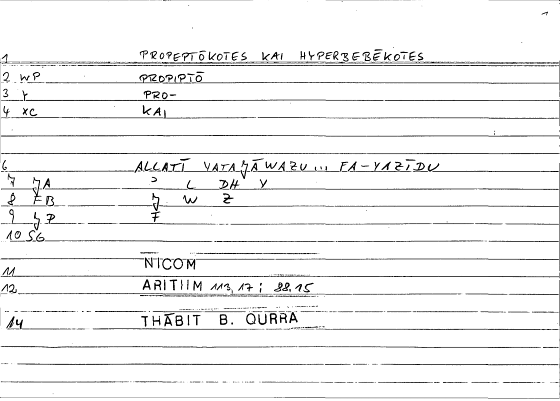 1 PROPEPTŌKOTES KAI HYPERBEBĒKOTES
2 WP PROPIPTŌ
3 Y PRO-
4 XC KAI
6 ALLATĪ YATAǦĀWAZU ... FA-YAZĪDU
7 ǦA ʾ L DH Y
8 FB Ǧ W Z
9 ǦP F
10 SG
11 NICOM
12 ARITIIM 113,17; 88,15
14 THĀBIT B. QURRA